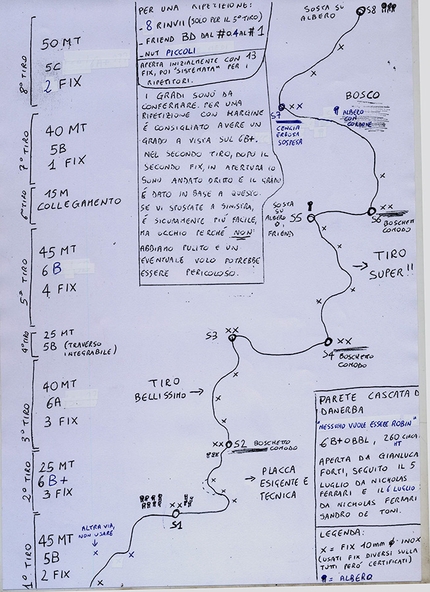 PER UNA RIPETIZIONE:
- 8 RINVII (SOLO PER IL 5° TIRO)
- FRIEND BD DAL #0.4 AL #1
- NUT PICCOLI
APERTA INIZIALMENTE CON 13
FIX, POI "SISTEMATA" PER I
RIPETITORI.
I GRADI SONO DA
CONFERMARE. PER UNA
RIPETIZIONE CON MARGINE
È CONSIGLIATO AVERE UN
GRADO A VISTA SUL 6B+.
NEL SECONDO TIRO, DOPO IL
SECONDO FIX, IN APERTURA IO
SONO ANDATO DRITTO E IL GRADO
È DATO IN BASE A QUESTO.
SE VI SPOSTATE A SINISTRA,
È SICURAMENTE PIÙ FACILE,
MA OCCHIO PERCHÉ NON
ABBIAMO PULITO E UN
EVENTUALE VOLO POTREBBE
ESSERE PERICOLOSO.
8° TIRO
50 MT
5C
2 FIX
7° TIRO
40 MT
5B
1 FIX
6° TIRO
15M
COLLEGAMENTO
5° TIRO
45 MT
6B
4 FIX
4° TIRO
25 MT
5B (TRAVERSO
INTEGRABILE)
3° TIRO
40 MT
6A
3 FIX
2° TIRO
25 MT
6B+
3 FIX
1° TIRO
45 MT
5B
2 FIX
SOSTA SU
ALBERO
S8
BOSCO
S7
CENGIA
ERBOSA
SOSPESA
ALBERO
CON
CORDONE
SOSTA
SU
ALBERO
O
FRIENDS
S5
S6
BOSCHETTO
COMODO
TIRO
SUPER!!
S3
S4
BOSCHETTO
COMODO
TIRO
BELLISSIMO
S2 BOSCHETTO
COMODO
PLACCA
ESIGENTE E
TECNICA
S1
ALTRA VIA,
NON USARE
PARETE CASCATA DI
DANERBA
"NESSUNO VUOLE ESSERE ROBIN"
6B+OBBL, 260 CIRCA
MT
APERTA DA GIANLUCA
FORTI, SEGUITO IL 5
LUGLIO DA NICHOLAS
FERRARI E IL 6 LUGLIO
DA NICHOLAS FERRARI
SANDRO DE TONI.
LEGENDA:
X = FIX 10mm Ø INOX
(USATI FIX DIVERSI SULLA
TUTTI PERÒ CERTIFICATI)
= ALBERO